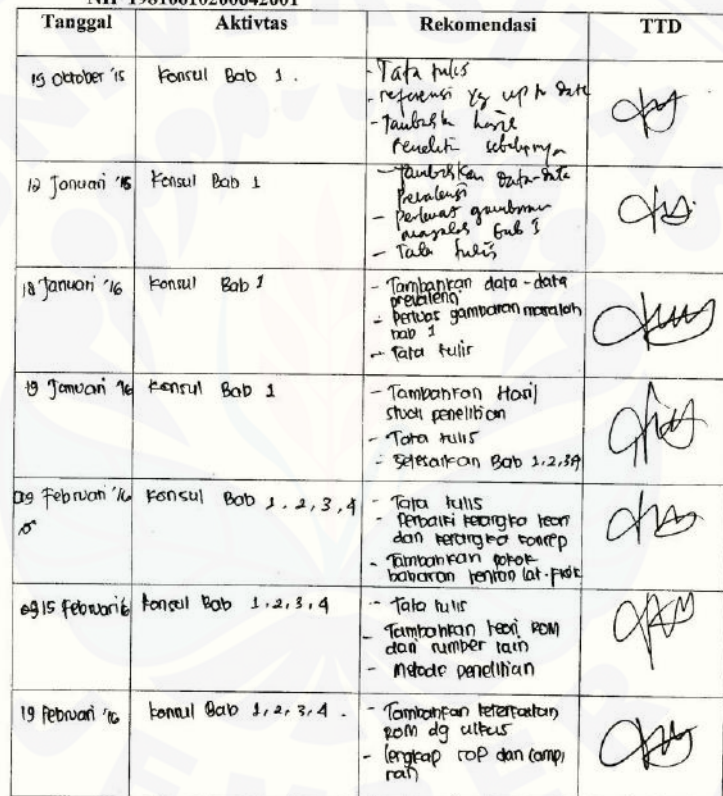 NIP 19810610200642001
Tanggal Aktivtas Rekomendasi TTD
15 Oktober '15 Konsul Bab 1. - Tata tulis
- referensi yg up to date
- Tambahkan hasil
Peneliti sebelumnya
12 Januari '15 Konsul Bab 1 - Tambahkan data-data
Prevalensi
- Perluas gambaran
masalah Bab 1
- Tata tulis
18 Januari '16 Konsul Bab 1 - Tambahkan data-data
prevalensi
- Perluas gambaran masalah
bab 1
- Tata tulis
19 Januari '16 Konsul Bab 1 - Tambahkan Hasil
studi penelitian
- Tata tulis
- Selesaikan Bab 1,2,3,4
09 Februari '16 Konsul Bab 1,2,3,4 - Tata tulis
- Perbaiki kerangka teori
dan kerangka konsep
- Tambahkan pokok
bahasan tentang lat. fisik
15 Februari 16 Konsul Bab 1,2,3,4 - Tata tulis
- Tambahkan teori ROM
dari sumber lain
- Metode penelitian
19 Februari '16 Konsul Bab 1,2,3,4. - Tambahkan keterkaitan
ROM dg ulkus
- lengkap SOP dan lampi
ran